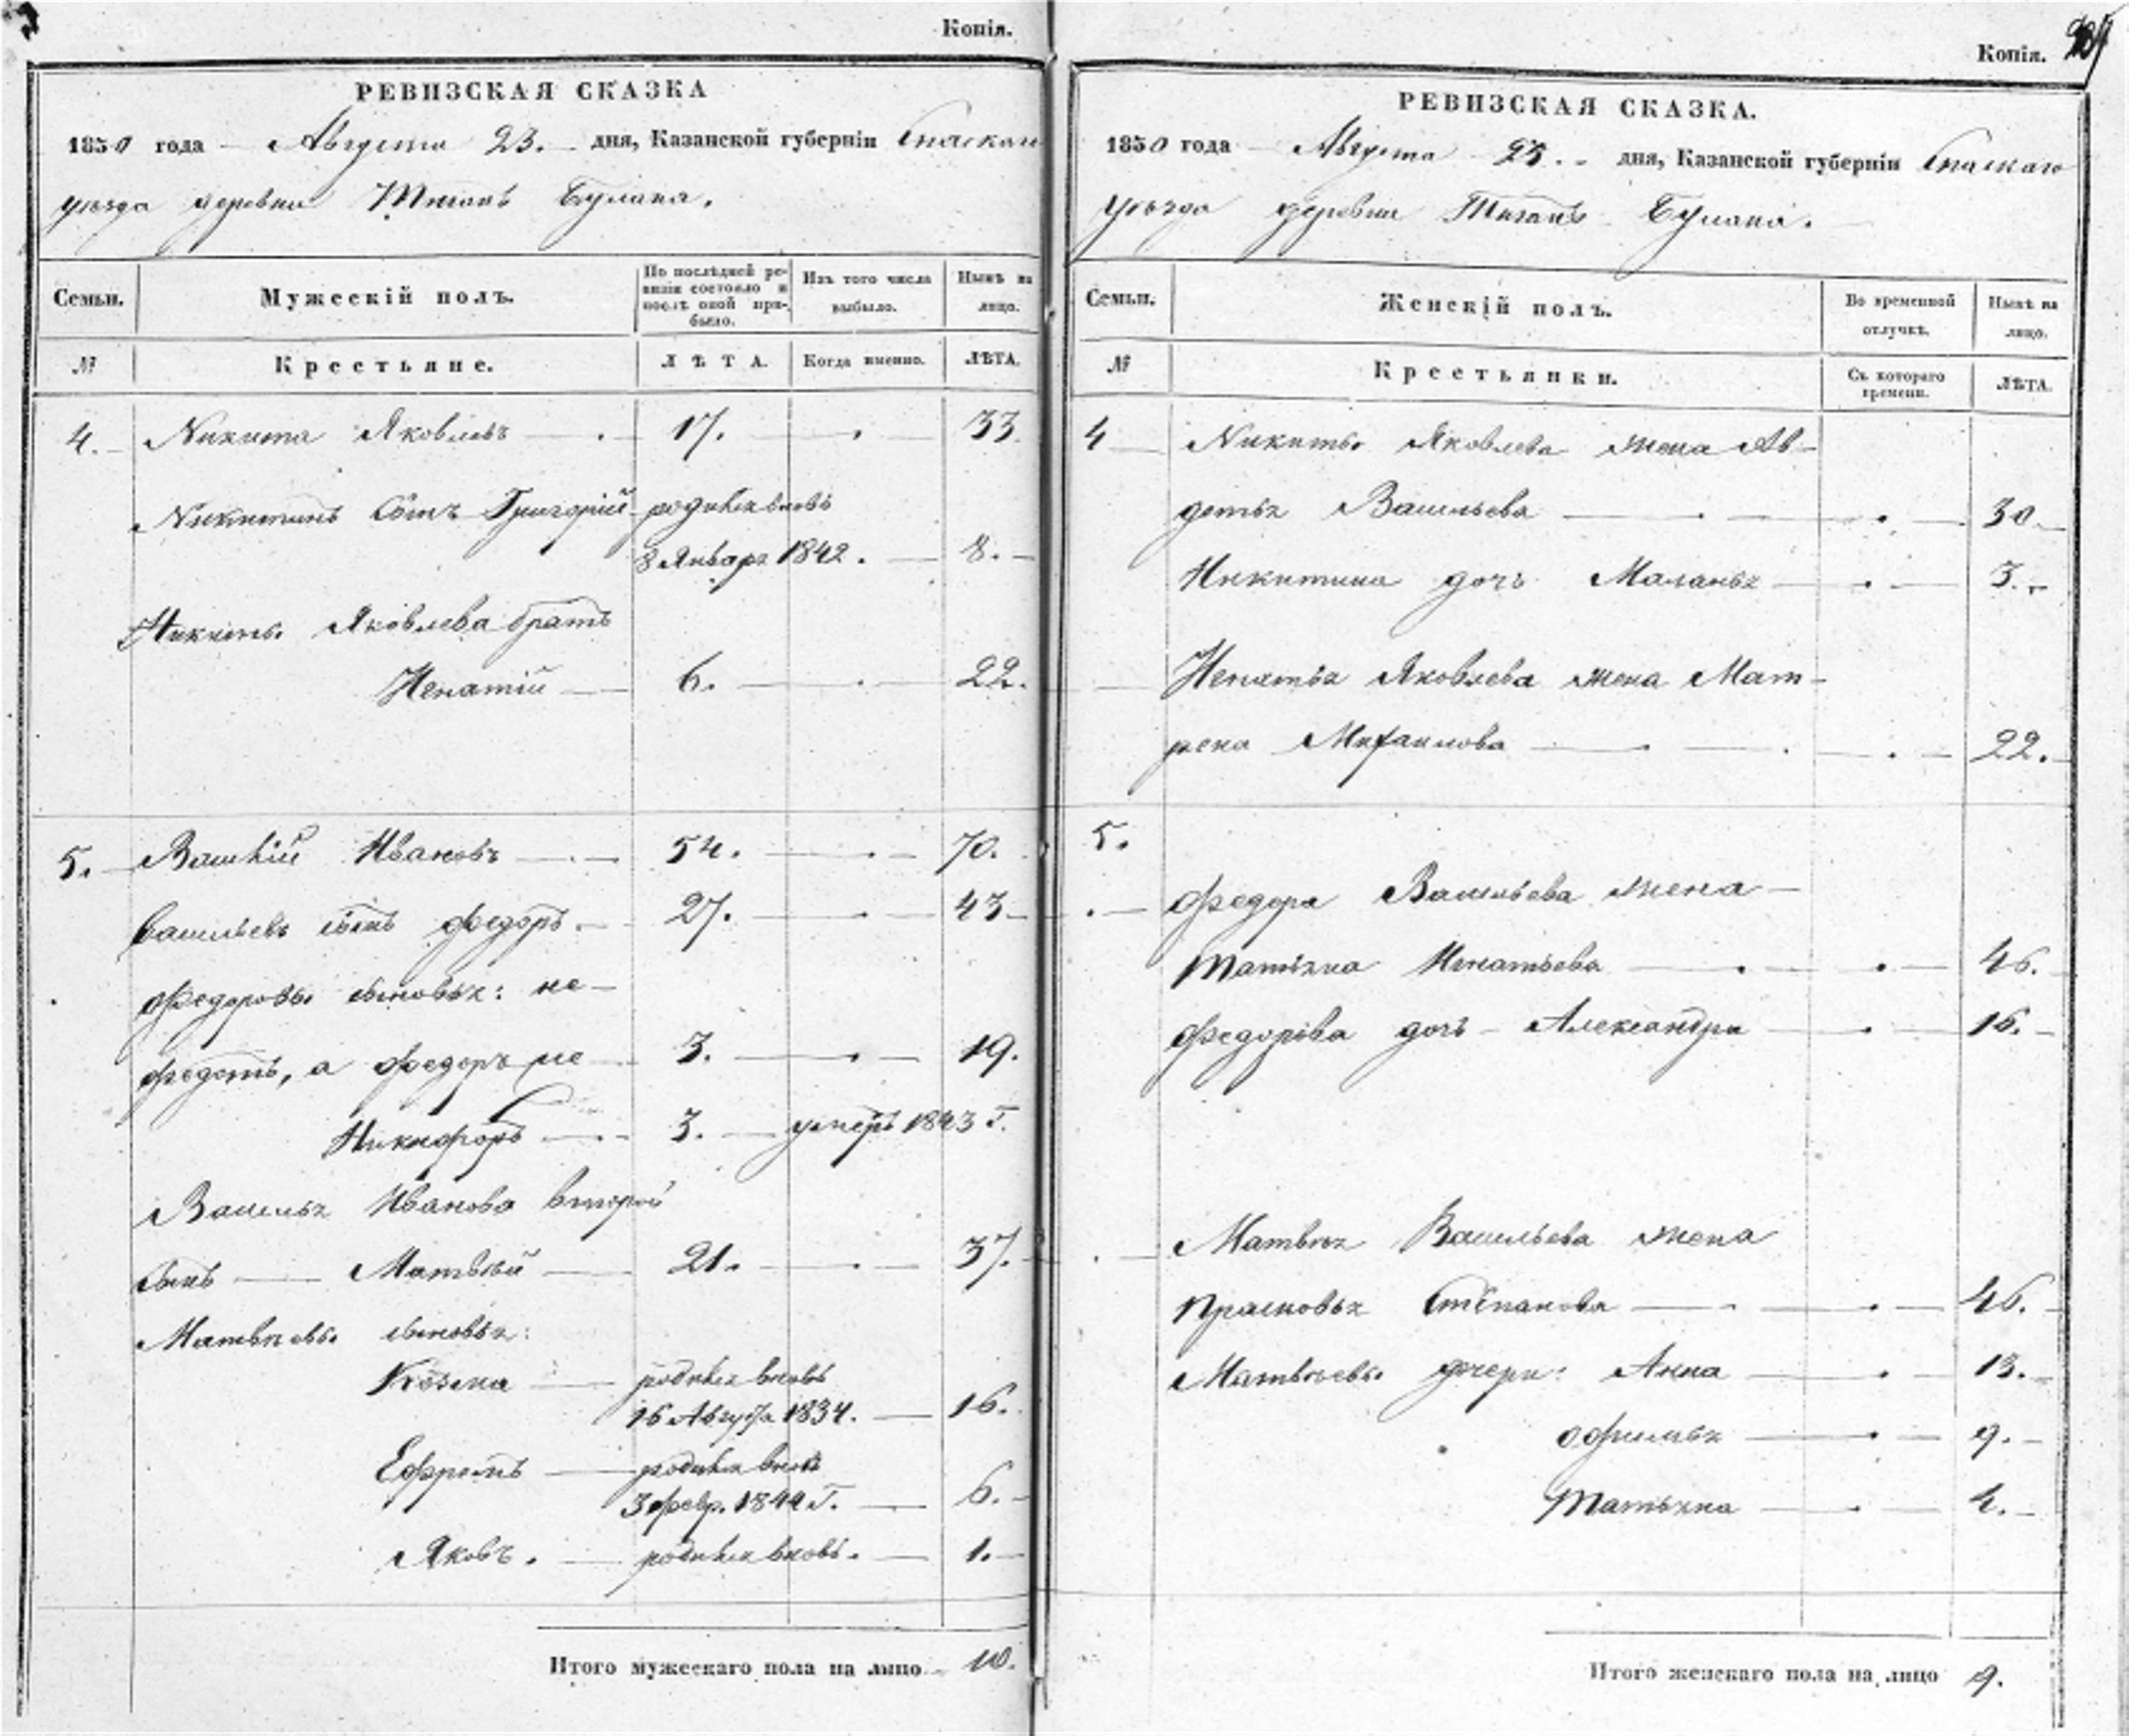 Копія.
РЕВИЗСКАЯ СКАЗКА
1850 года Августа 23. дня, Казанской губерніи Спаскаго
уѣзда деревни Тиганъ Булака.
Семьи. Мужескій полъ. По послѣдней ревизіи состояло и послѣ оной прибыло. Изъ того числа выбыло. Нынѣ на лицо.
№ Крестьяне. ЛѢТА. Когда именно. ЛѢТА.
4. Никита Яковлевъ 17. 33.
Никитинъ сынъ Григорій родился вновь
8 Января 1842. 8.
Никиты Яковлева братъ
Игнатій 6. 22.
5. Василій Ивановъ 54. 70.
Васильевъ сынъ Федоръ. 27. 43
Федоровы сыновья: не-
Федотъ, а Федоръ не 3. 19.
Никифоръ 3. умеръ 1843 г.
Василья Иванова второй
сынъ Матвѣй 21. 37.
Матвѣевы сыновья:
Козма родился вновь
16 Августа 1834. 16.
Ефремъ родился вновь
3 февр. 1844 г. 6.
Яковъ. родился вновь. 1.
Итого мужескаго пола на лицо 10.
Копія.
РЕВИЗСКАЯ СКАЗКА.
1850 года Августа 23. дня, Казанской губерніи Спаскаго
уѣзда деревни Тиганъ Булака.
Семьи. Женскій полъ. Во временной отлучкѣ. Нынѣ на лицо.
№ Крестьянки. Съ котораго времени. ЛѢТА.
4 Никиты Яковлева жена Ав-
дотья Васильева 30.
Никитина дочь Маланья 3.
Игнатья Яковлева жена Мат-
рена Михаилова 22.
5.
Федора Васильева жена
Татьяна Игнатьева 46.
Федорова дочь Александра 16.
Матвѣя Васильева жена
Прасковья Степанова 46.
Матвѣевы дочери: Анна 13.
Офимья 9.
Татьяна 4.
Итого женскаго пола на лицо 9.